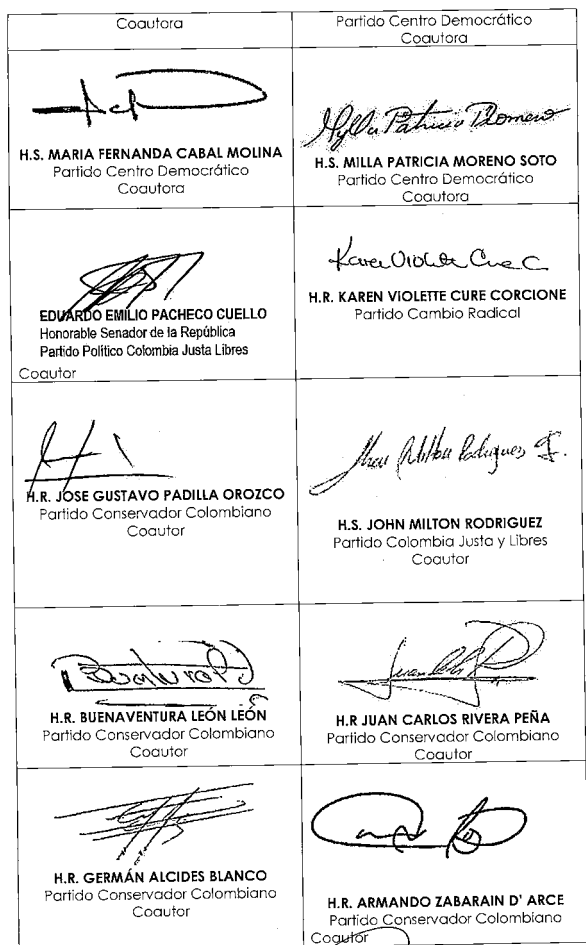 Coautora
Partido Centro Democrático
Coautora
H.S. MARIA FERNANDA CABAL MOLINA
Partido Centro Democrático
Coautora
H.S. MILLA PATRICIA MORENO SOTO
Partido Centro Democrático
Coautora
EDUARDO EMILIO PACHECO CUELLO
Honorable Senador de la República
Partido Político Colombia Justa Libres
Coautor
Karen Violette Cure C
H.R. KAREN VIOLETTE CURE CORCIONE
Partido Cambio Radical
H.R. JOSE GUSTAVO PADILLA OROZCO
Partido Conservador Colombiano
Coautor
H.S. JOHN MILTON RODRIGUEZ
Partido Colombia Justa y Libres
Coautor
H.R. BUENAVENTURA LEÓN LEÓN
Partido Conservador Colombiano
Coautor
H.R JUAN CARLOS RIVERA PEÑA
Partido Conservador Colombiano
Coautor
H.R. GERMÁN ALCIDES BLANCO
Partido Conservador Colombiano
Coautor
H.R. ARMANDO ZABARAIN D' ARCE
Partido Conservador Colombiano
Coautor